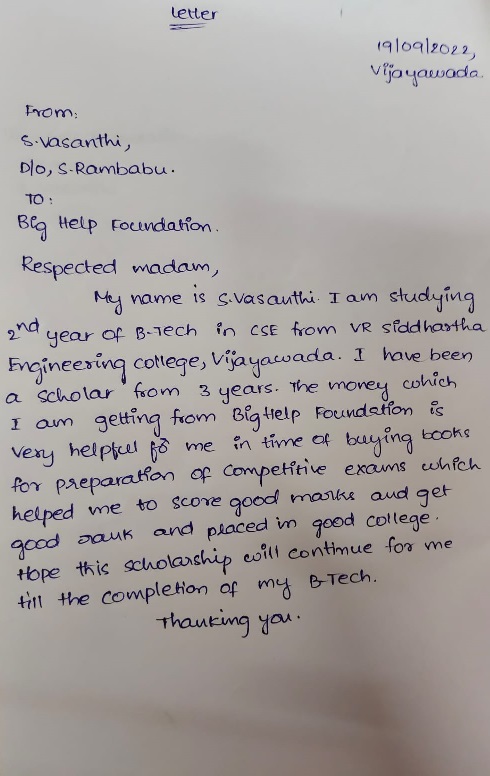 Letter
19/09/2022,
Vijayawada.
From:
S.Vasanthi,
D/o, S.Rambabu.
TO:
Big Help Foundation.
Respected madam,
My name is S.Vasanthi. I am studying
2nd year of B-Tech in CSE from VR Siddhartha
Engineering college, Vijayawada. I have been
a scholar from 3 years. The money which
I am getting from Big Help Foundation is
very helpful to me in time of buying books
for preparation of competitive exams which
helped me to score good marks and get
good rank and placed in good college.
Hope this scholarship will continue for me
till the completion of my B-Tech.
Thanking you.